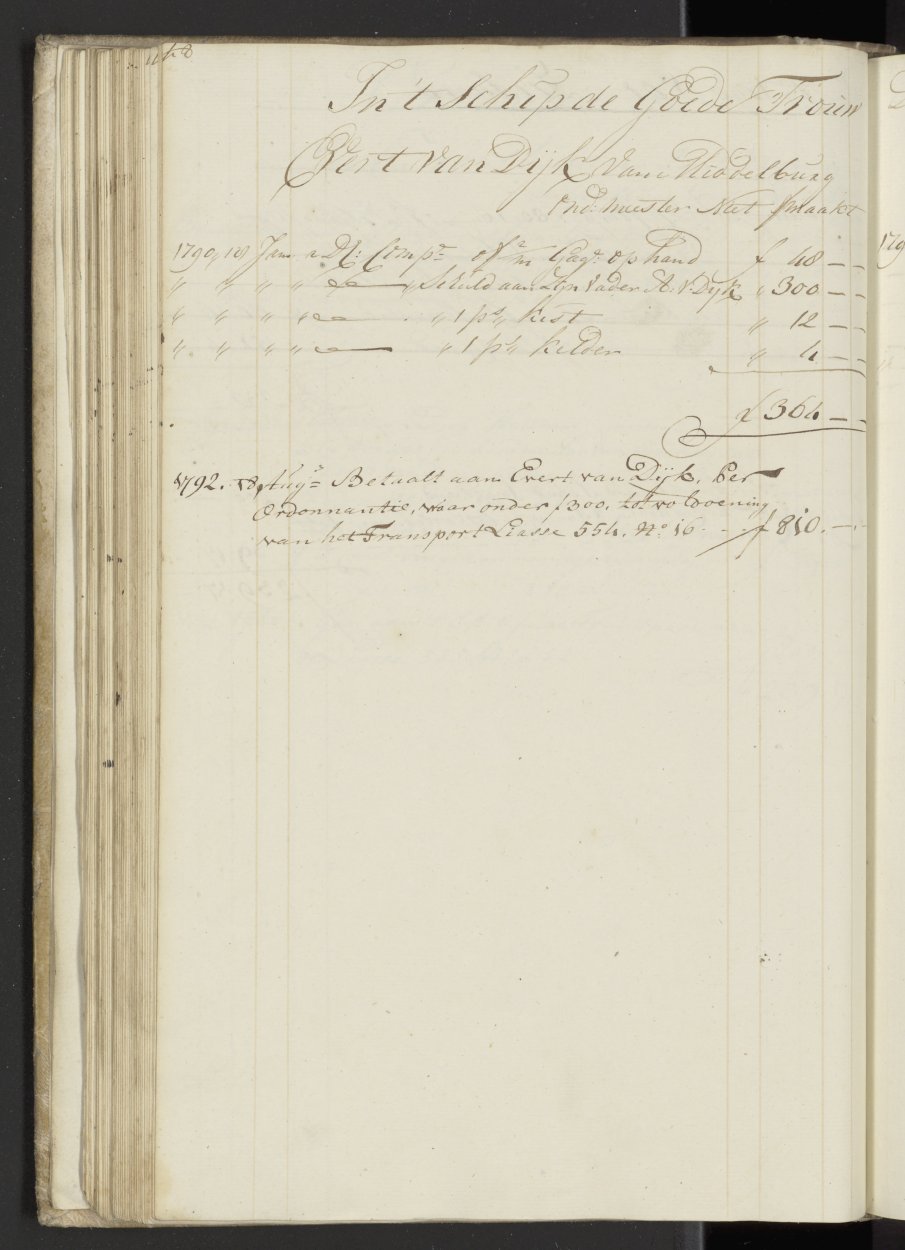 In't Schip de Goede Trouw
Evert van Dijk van Middelburg
Ond: meester Niet gmaakt
1790, 10 Jan a D'E: Comp:e of 2/m Gage op hand f 48 - -
" " " " " Schuld aan Zijn Vader A: V: Dijk " 300 - -
" " " " " 1 ps: kist " 12 - -
" " " " " 1 ps: kelder " 4 - -
f 364 - -
1792. 18, Aug:s Betaalt aan Evert van Dijk, Per
Ordonnantie, waar onder f 300, tot voldoening
van het Transport Liasse 554. No: 16 - - f 810. - -
179